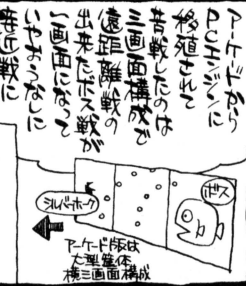 アーケードから
PCエンジンに
移殖されて
苦戦したのは
三画面構成で
遠距離戦の
出来たボス戦が
一画面になって
いやおうなしに
接近戦に
ボス
シルバーホーク
アーケード版は
大型筐体
横三画面構成